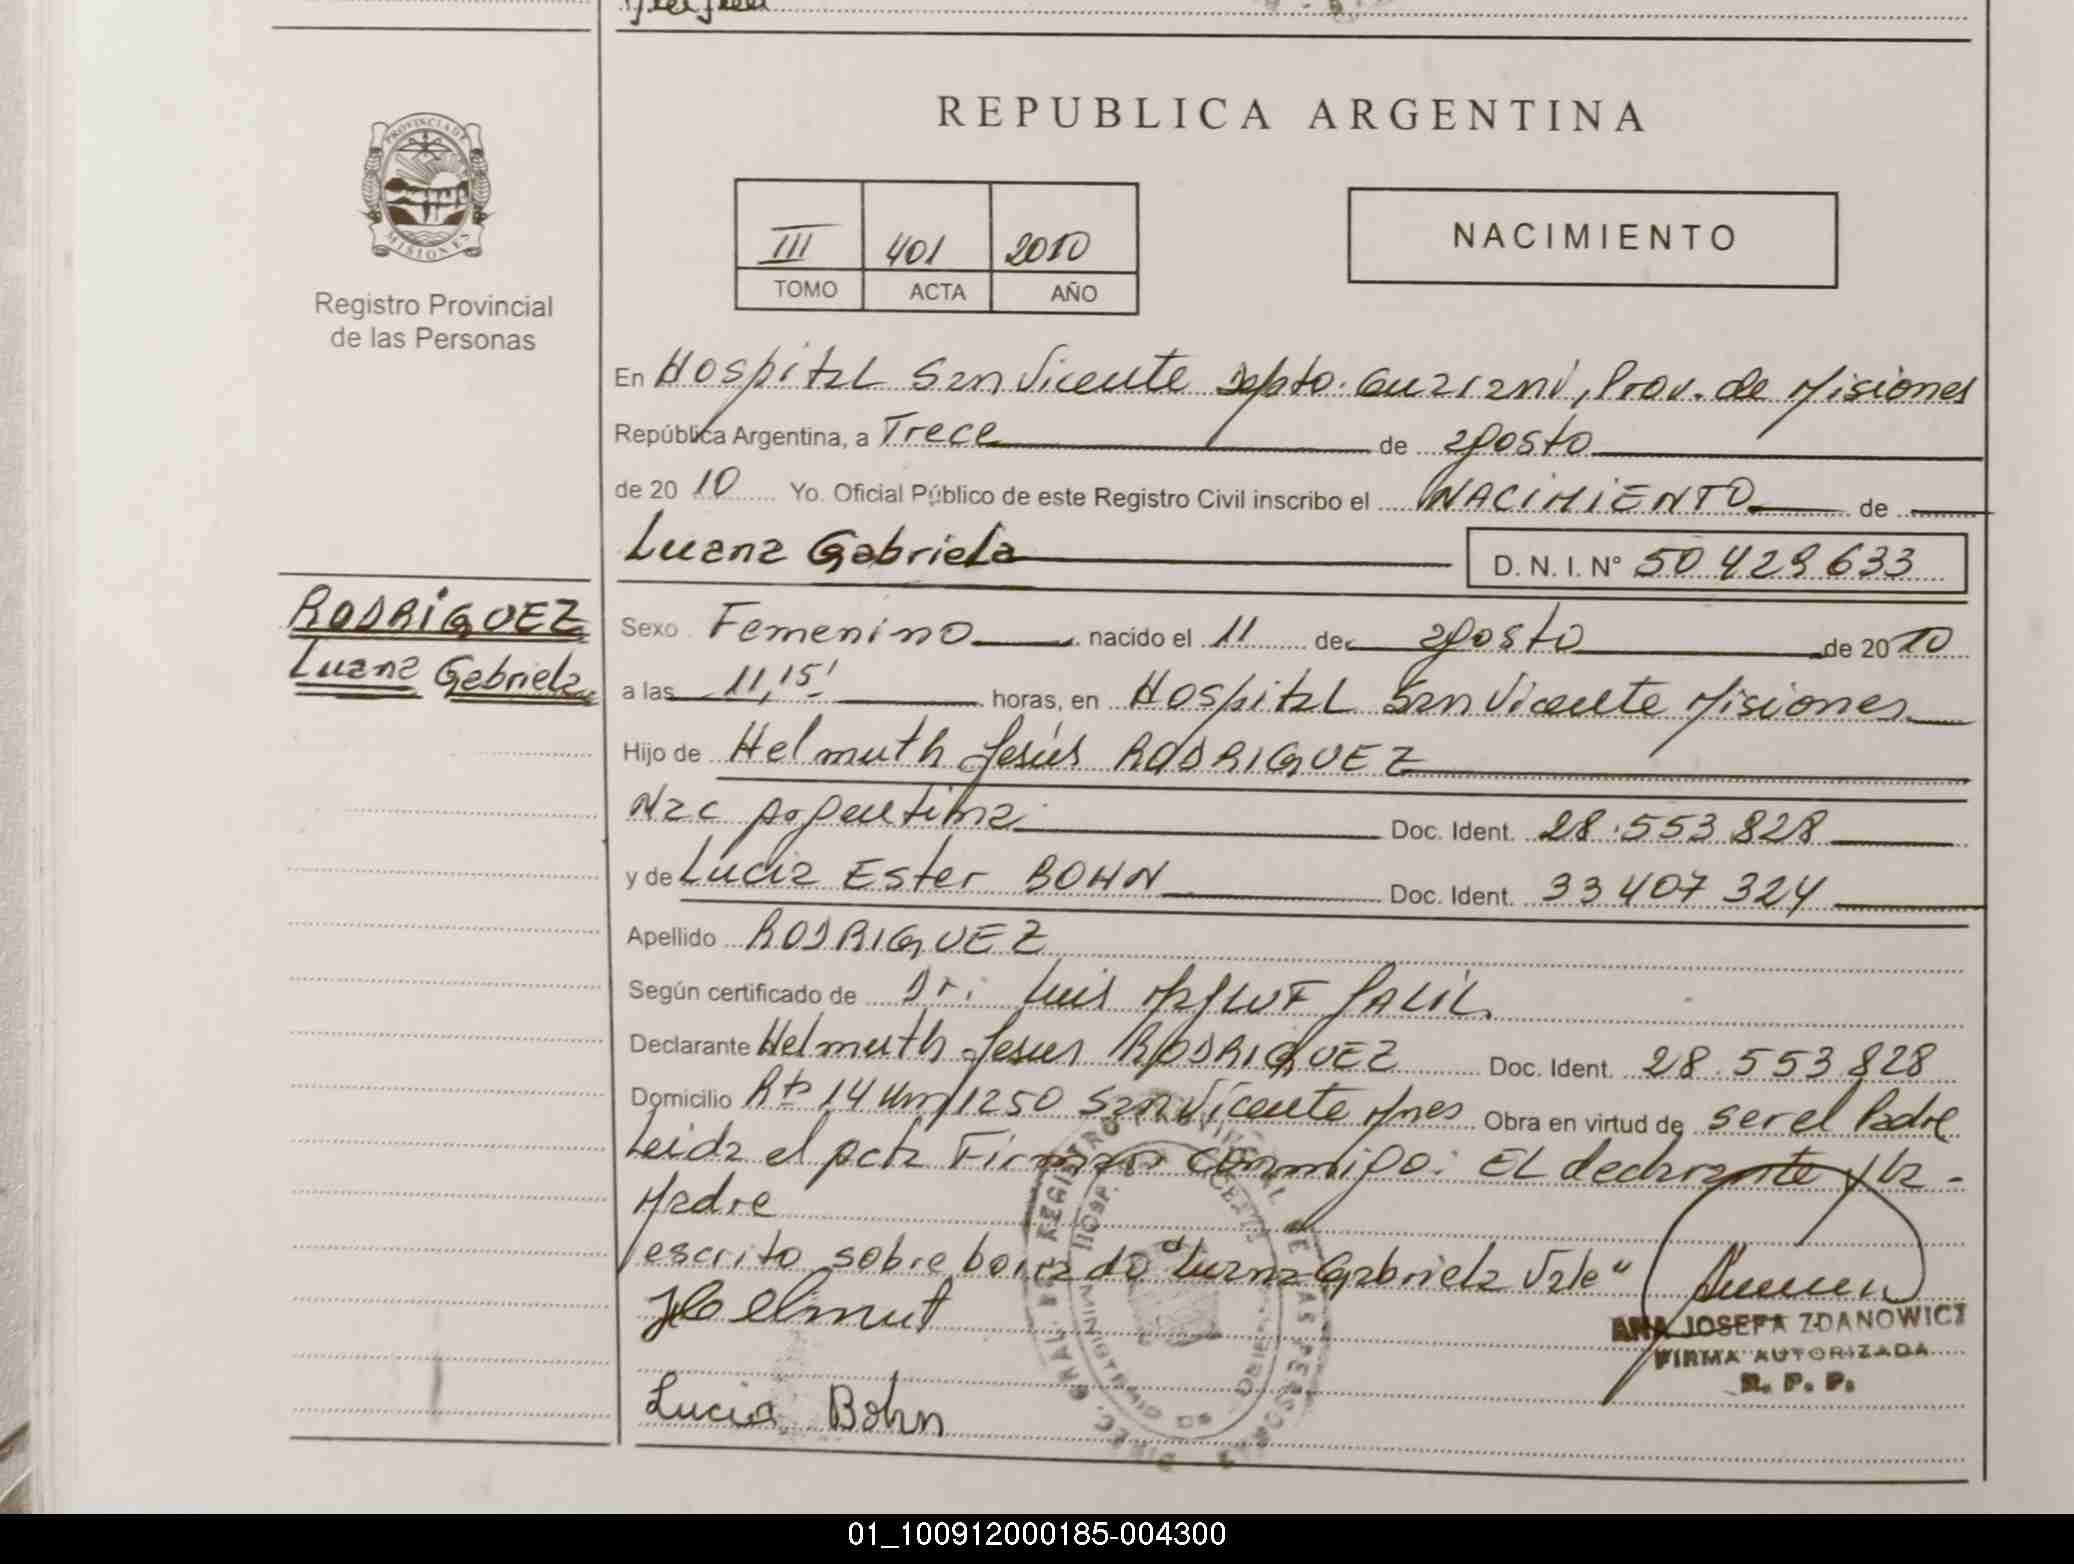 REPUBLICA ARGENTINA
PROVINCIA DE
MISIONES
Registro Provincial
de las Personas
III 401 2010
TOMO ACTA AÑO
NACIMIENTO
En Hospital San Vicente Depto. Guarani, Prov. de Misiones
República Argentina, a Trece de agosto
de 2010 Yo. Oficial Público de este Registro Civil inscribo el NACIMIENTO de
Luana Gabriela D. N. I. N° 50 429 633
RODRIGUEZ
Luana Gabriela
Sexo Femenino nacido el 11 de agosto de 2010
a las 11,15' horas, en Hospital San Vicente Misiones
Hijo de Helmuth Jesús RODRIGUEZ
Nac Argentina Doc. Ident. 28.553.828
y de Lucia Ester BOHN Doc. Ident. 33 407 324
Apellido RODRIGUEZ
Según certificado de Dr. Luis JALIL
Declarante Helmuth Jesus RODRIGUEZ Doc. Ident. 28.553.828
Domicilio Rta 14 Km 1250 San Vicente Mnes Obra en virtud de ser el Padre
Leida el acta Firman conmigo: EL declarante y la -
Madre
escrito sobre borrado "Luana Gabriela Vale"
Helmut
ANA JOSEFA ZDANOWICZ
FIRMA AUTORIZADA
R. P. P.
Lucia Bohn
01_100912000185-004300